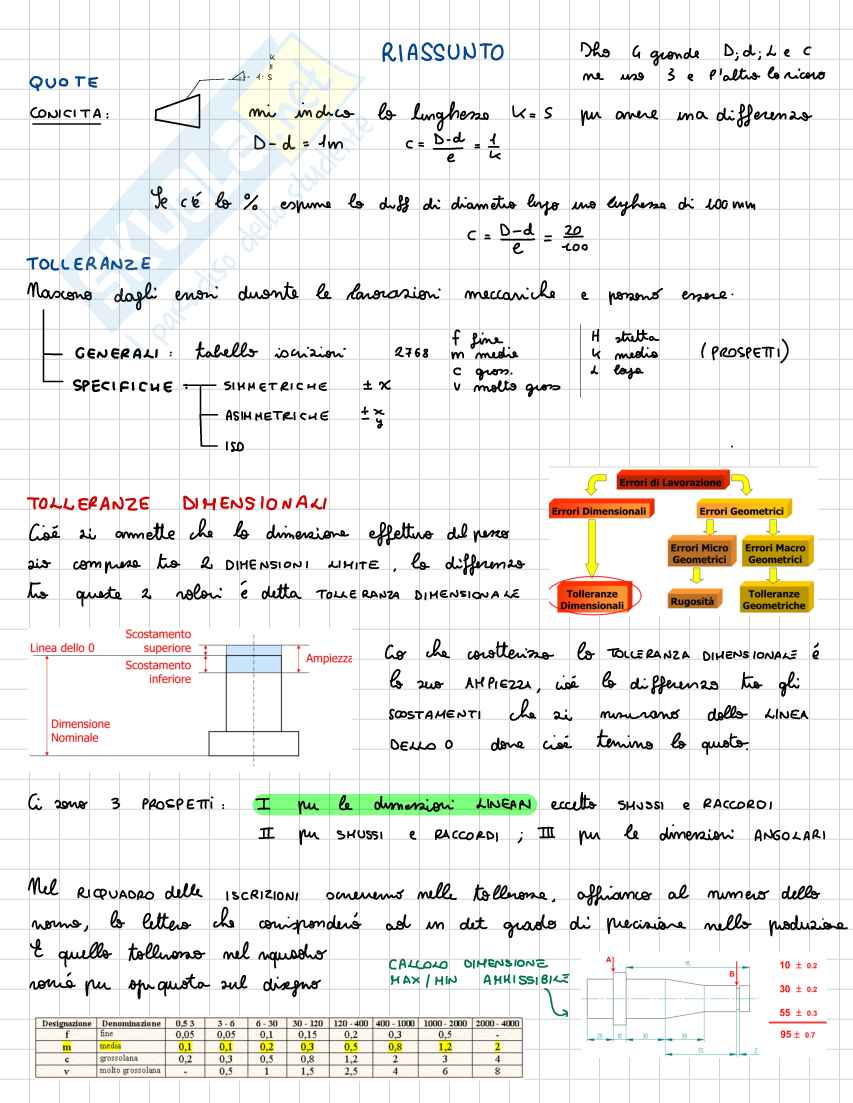 RIASSUNTO
Dho 4 grande D; d; L e c
ne uso 3 e l'altro lo ricavo
QUOTE
1: S
CONICITA: mi indica la lunghezza K = S per avere una differenza
D-d = 1m c = D-d/e = 1/k
Se c'é la % esprime la diff di diametro lungo una lughezza di 100 mm
c = D-d/e = 20/100
TOLLERANZE
Nascono dagli errori durante le lavorazioni meccaniche e possono essere.
GENERALI: tabella iscrizioni 2768
f fine
m media
c gross.
v molto gross
H stretta
K media
L larga
(PROSPETTI)
SPECIFICHE
SIMMETRICHE ± x
ASIMMETRICHE ± x y
ISO
TOLLERANZE DIMENSIONALI
Cioé si ammette che la dimensione effettiva del pezzo
sia compresa tra 2 DIMENSIONI LIMITE, la differenza
tra queste 2 valori é detta TOLLERANZA DIMENSIONALE
Errori di Lavorazione
Errori Dimensionali Errori Geometrici
Errori Micro Geometrici Errori Macro Geometrici
Tolleranze Dimensionali Rugosità Tolleranze Geometriche
Linea dello 0
Scostamento superiore
Scostamento inferiore
Ampiezza
Dimensione Nominale
Cio che caratterizza la TOLLERANZA DIMENSIONALE é
la sua AMPIEZZA, cioé la differenza tra gli
SCOSTAMENTI che si misurano dalla LINEA
DELLO 0 dove cioé termina la quota.
Ci sono 3 PROSPETTI: I per le dimensioni LINEARI eccetto SMUSSI e RACCORDI
II per SMUSSI e RACCORDI; III per le dimensioni ANGOLARI
Nel RIQUADRO delle ISCRIZIONI avremo nelle tolleranze, affianco al numero della
norma, la lettera che corrisponderá ad un det grado di precisione nella produzione
E quella tolleranza nel riquadro
varrá per ogni quota sul disegno
CALCOLO DIMENSIONE
MAX/MIN AMMISSIBILE
A
B
10 ± 0.2
30 ± 0.2
55 ± 0.3
95 ± 0.7
Designazione Denominazione 0,5 3 3 - 6 6 - 30 30 - 120 120 - 400 400 - 1000 1000 - 2000 2000 - 4000
f fine 0,05 0,05 0,1 0,15 0,2 0,3 0,5 -
m media 0,1 0,1 0,2 0,3 0,5 0,8 1,2 2
c grossolana 0,2 0,3 0,5 0,8 1,2 2 3 4
v molto grossolana - 0,5 1 1,5 2,5 4 6 8
SKUOLA.net
il paradiso dello studente